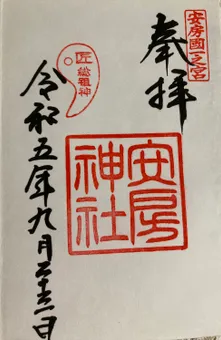 安房國一之宮
奉拝
安房
神社
匠
総祖神
令和五年九月二十三日